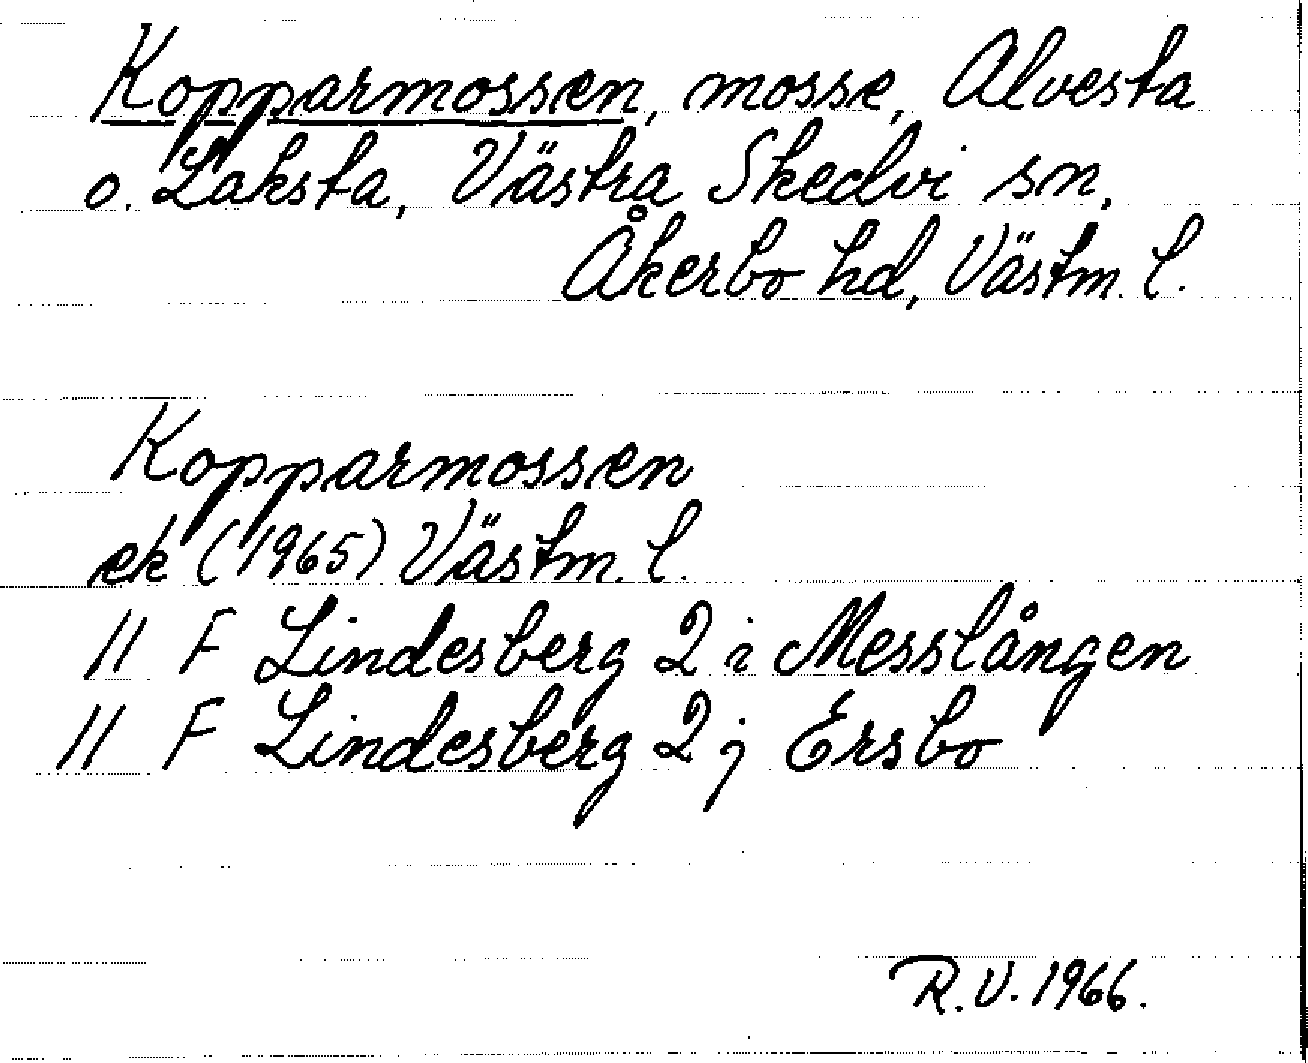 Kopparmossen, mosse, Alvesta
o. Laksta, Västra Skedvi sn,
Åkerbo hd, Västm. l.
Kopparmossen
ek (1965) Västm. l.
11 F Lindesberg 2 i Messlången
11 F Lindesberg 2 j Ersbo
R.V. 1966.